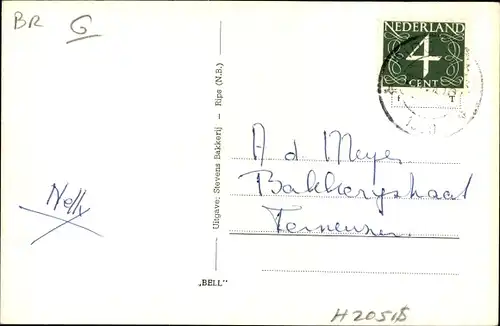 BR G
NEDERLAND
4
CENT
Uitgave: Stevens Bakkerij — Rips (N.B.)
A d Meyer
Bakkerystraat
Terneuzen
Nelly
„BELL”
H 2051$